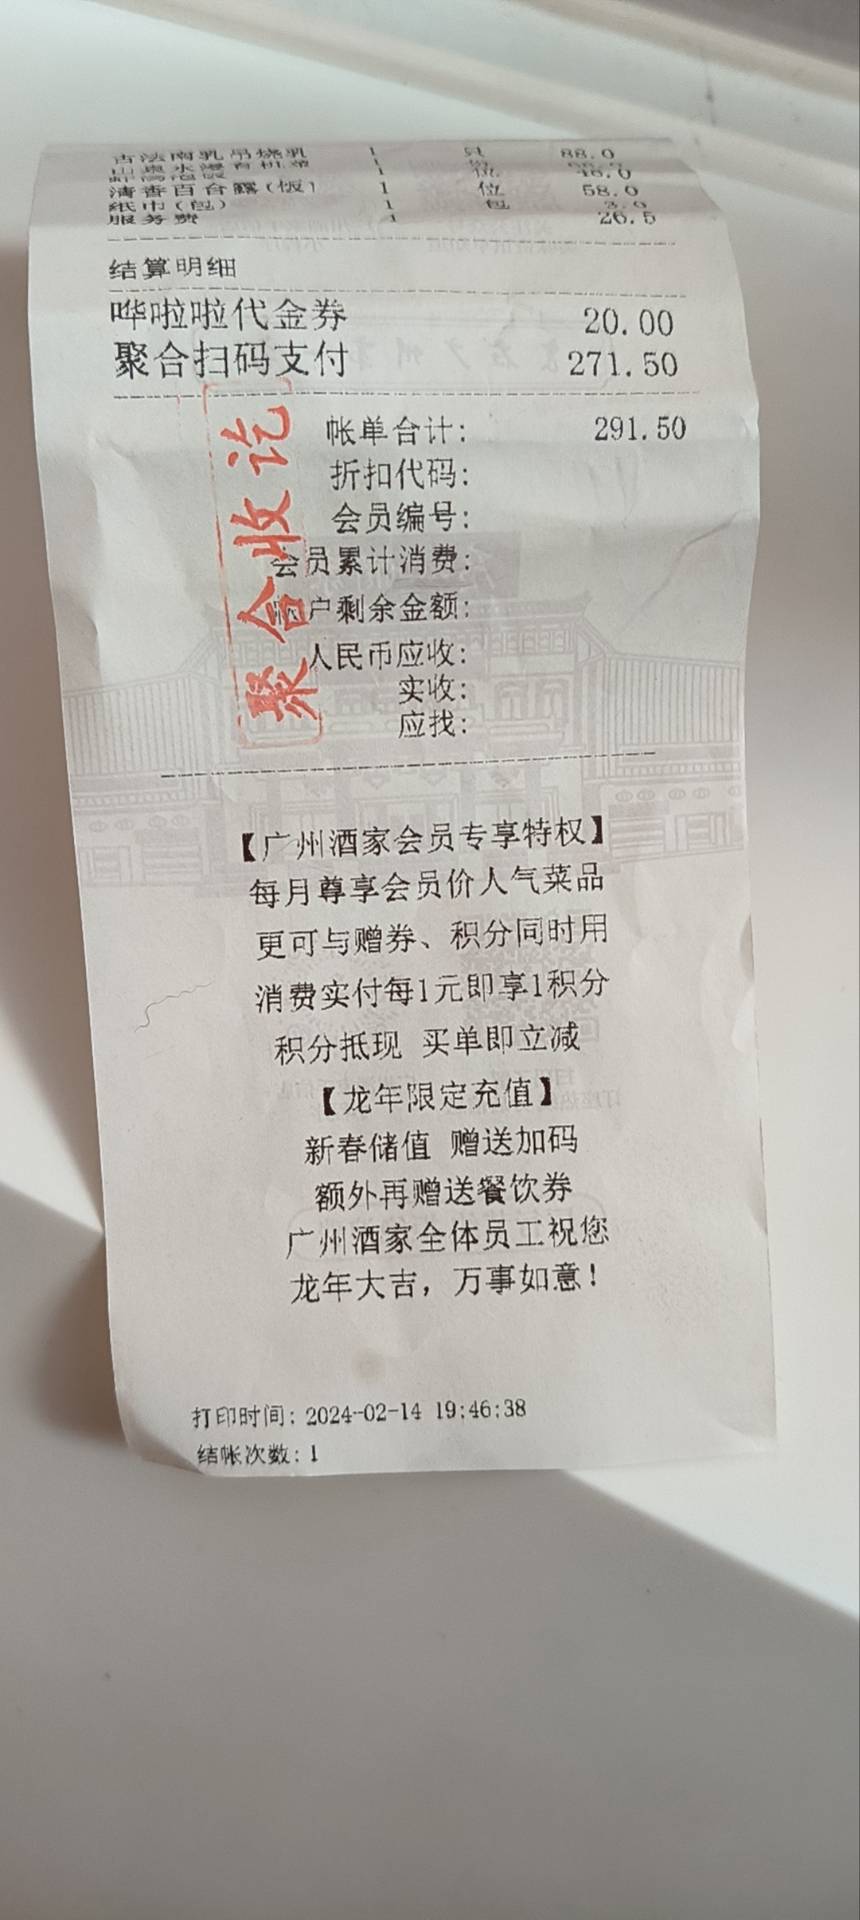 古法南乳吊烧乳 1 只 88.0
1 份
1 位 48.0
清香百合露(位) 1 位 58.0
纸巾(包) 1 包 3.0
服务费 1 26.5
结算明细
哗啦啦代金券 20.00
聚合扫码支付 271.50
聚合收讫
帐单合计: 291.50
折扣代码:
会员编号:
会员累计消费:
帐户剩余金额:
人民币应收:
实收:
应找:
【广州酒家会员专享特权】
每月尊享会员价人气菜品
更可与赠券、积分同时用
消费实付每1元即享1积分
积分抵现 买单即立减
【龙年限定充值】
新春储值 赠送加码
额外再赠送餐饮券
广州酒家全体员工祝您
龙年大吉，万事如意！
打印时间: 2024-02-14 19:46:38
结帐次数: 1